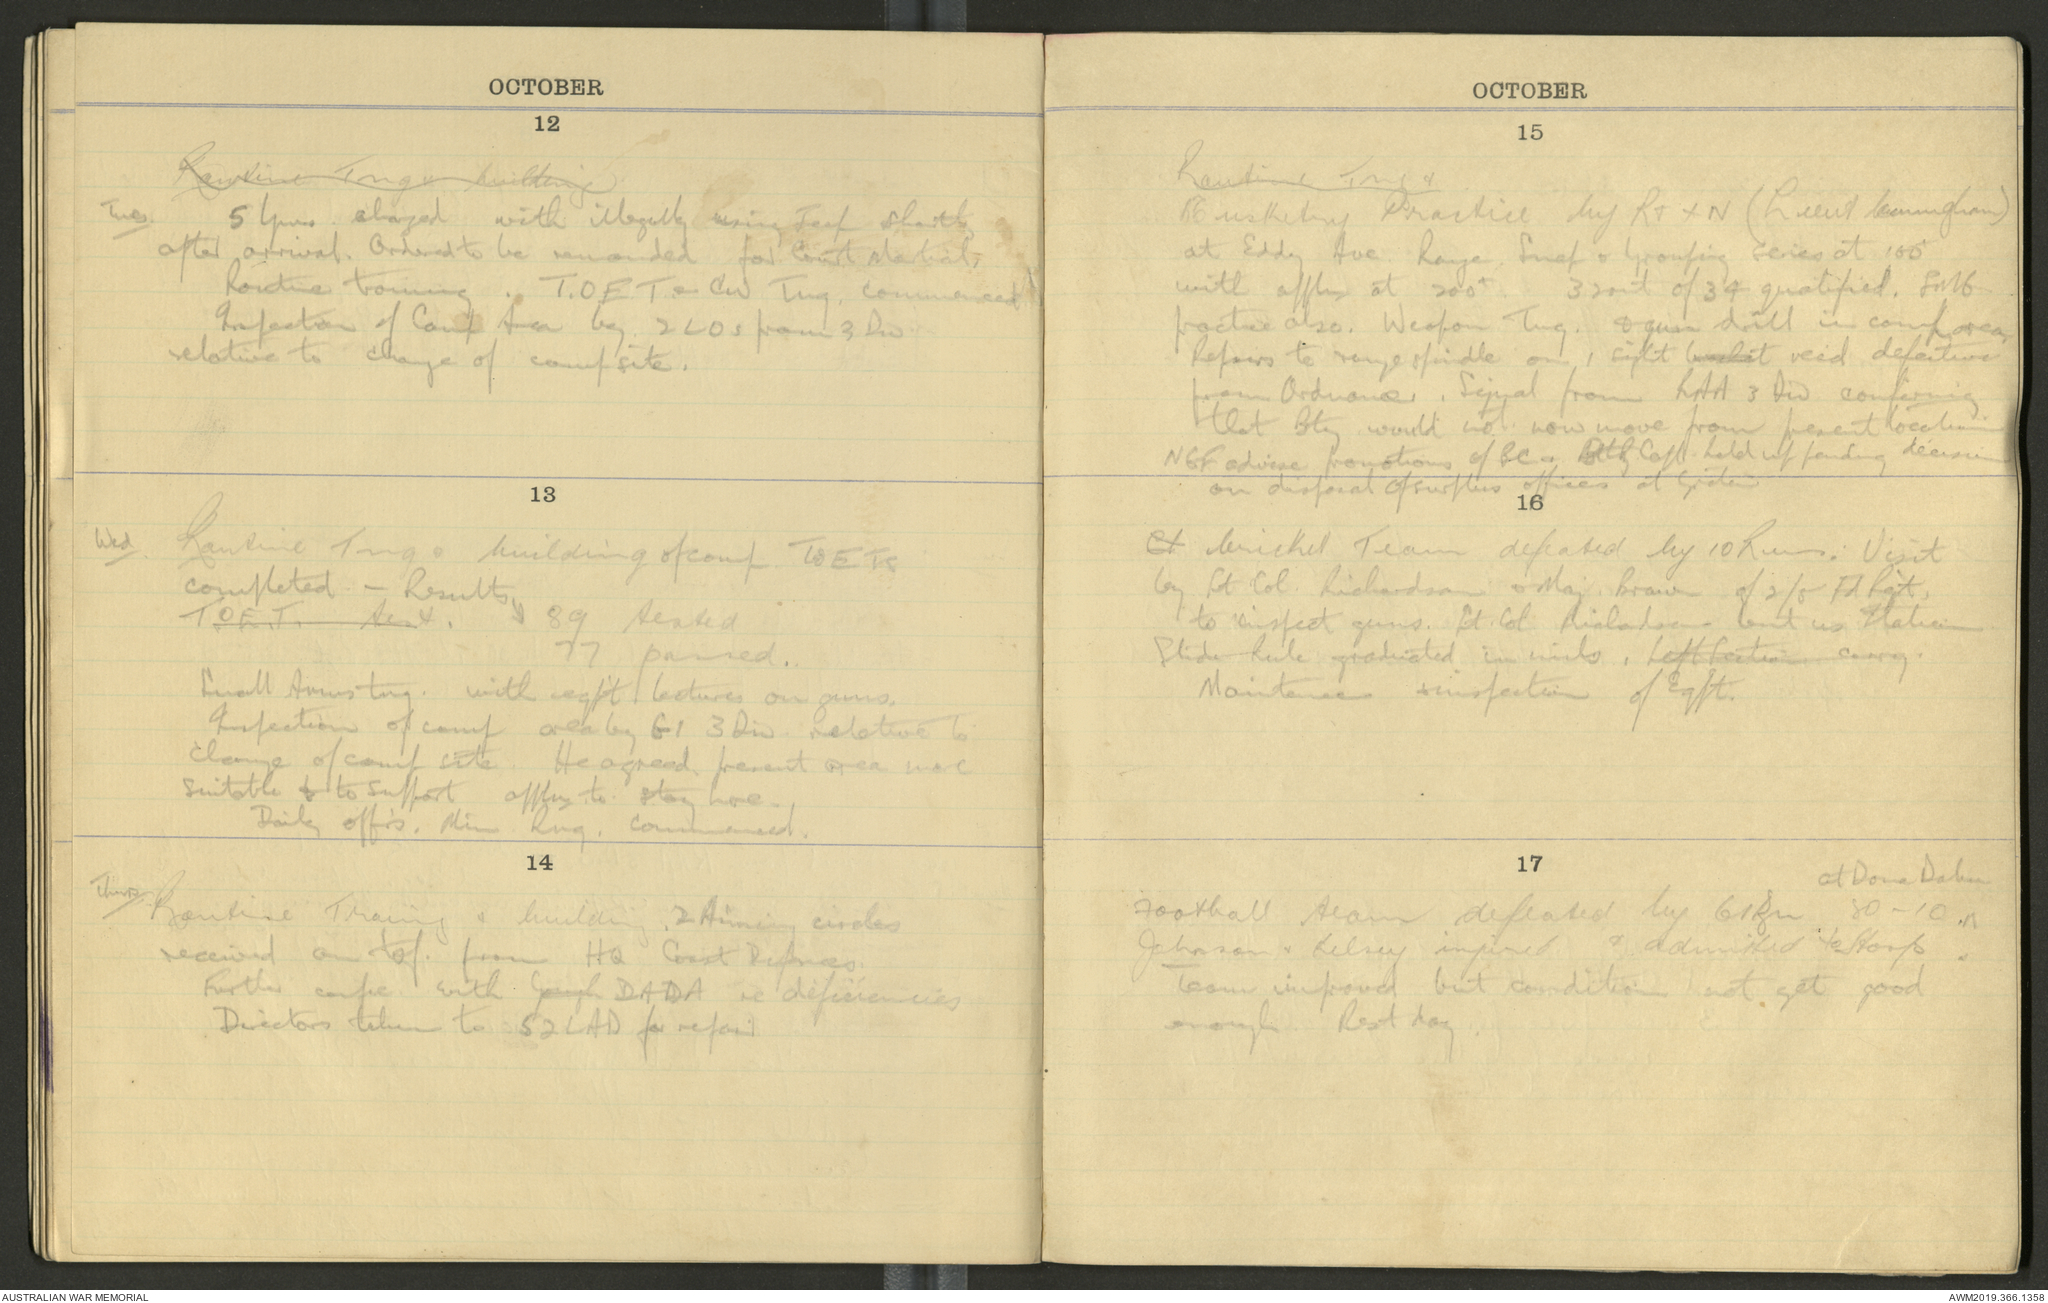 OCTOBER
12
Routine Tng & building
Tues. 5 Gnrs charged with illegally using Jeep shortly
after arrival. Ordered to be remanded for Court Martial.
Routine training. T.O.E.T. & CW Tng. commenced
Inspection of Camp Area by 2 LOs from 3 Div
relative to change of camp site.
13
Wed. Routine Tng & building of camp TOETs
completed - Results
T.O.E.T. 89 tested
77 passed.
Small Arms tng. with eqpt lectures on guns.
Inspection of camp area by G1 3 Div. relative to
change of camp site. He agreed present area most
suitable & to support applyn to stay here.
Daily offrs. Min Rng. commenced.
14
Thurs. Routine Training & building. 2 Aiming circles
received on tsf. from HQ Coast Defences.
Further confce with DADA re deficiencies
Directors taken to 52 LAD for repair
OCTOBER
15
Routine Tng &
Musketry Practice by Rt X N (Lieut Cunningham)
at Eddy Ave Range. Snap & Grouping series at 100x
with applyn at 200x. 32 out of 34 qualified. SMG
practice also. Weapon Tng. & gun drill in camp area
Repairs to range spindle on 1 sight recd defective
from Ordnance. Signal from RAA 3 Div confirming
that Bty would not now move from present location
NGF advise promotions of BC & Bty Capt held up pending decision
on disposal of surplus officers at
16
Cricket Team defeated by 10 Runs. Visit
by Lt Col. Richardson & Maj. Brown of 2/5 Fd Rgt.
to inspect guns. Lt. Col Richardson lent us
Slide Rule graduated in mils.
Maintenance & inspection of Eqpt.
17
at Dona Dabu
Football team defeated by 61 Bn 30-10.
Johnson & Kelsey injured & admitted to Hosp.
Team improved but condition not yet good
enough. Rest day.
AUSTRALIAN WAR MEMORIAL
AWM2019.366.1358